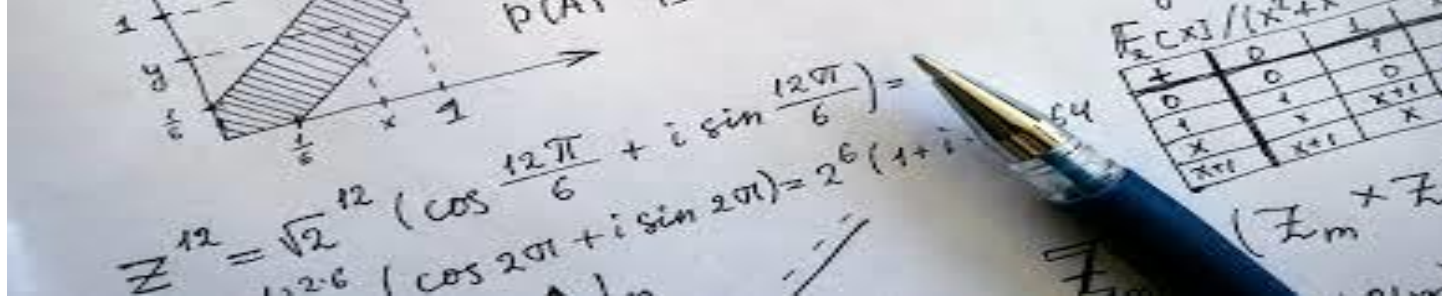 1
y
1/6
1/6
x
1
P(A)
Z^12 = √2^12 (cos 12π/6 + i sin 12π/6) =
2·6 (cos 2π + i sin 2π) = 2^6 (1 + i · 64
F_2[x]/(x^2+x
+ 0 1
0 0 1
1 1 0
x x x+1
x+1 x+1 x
(Z_m × Z
Z